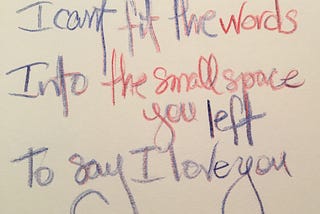 I cant fit the words
Into the small space
you left
To say I love you